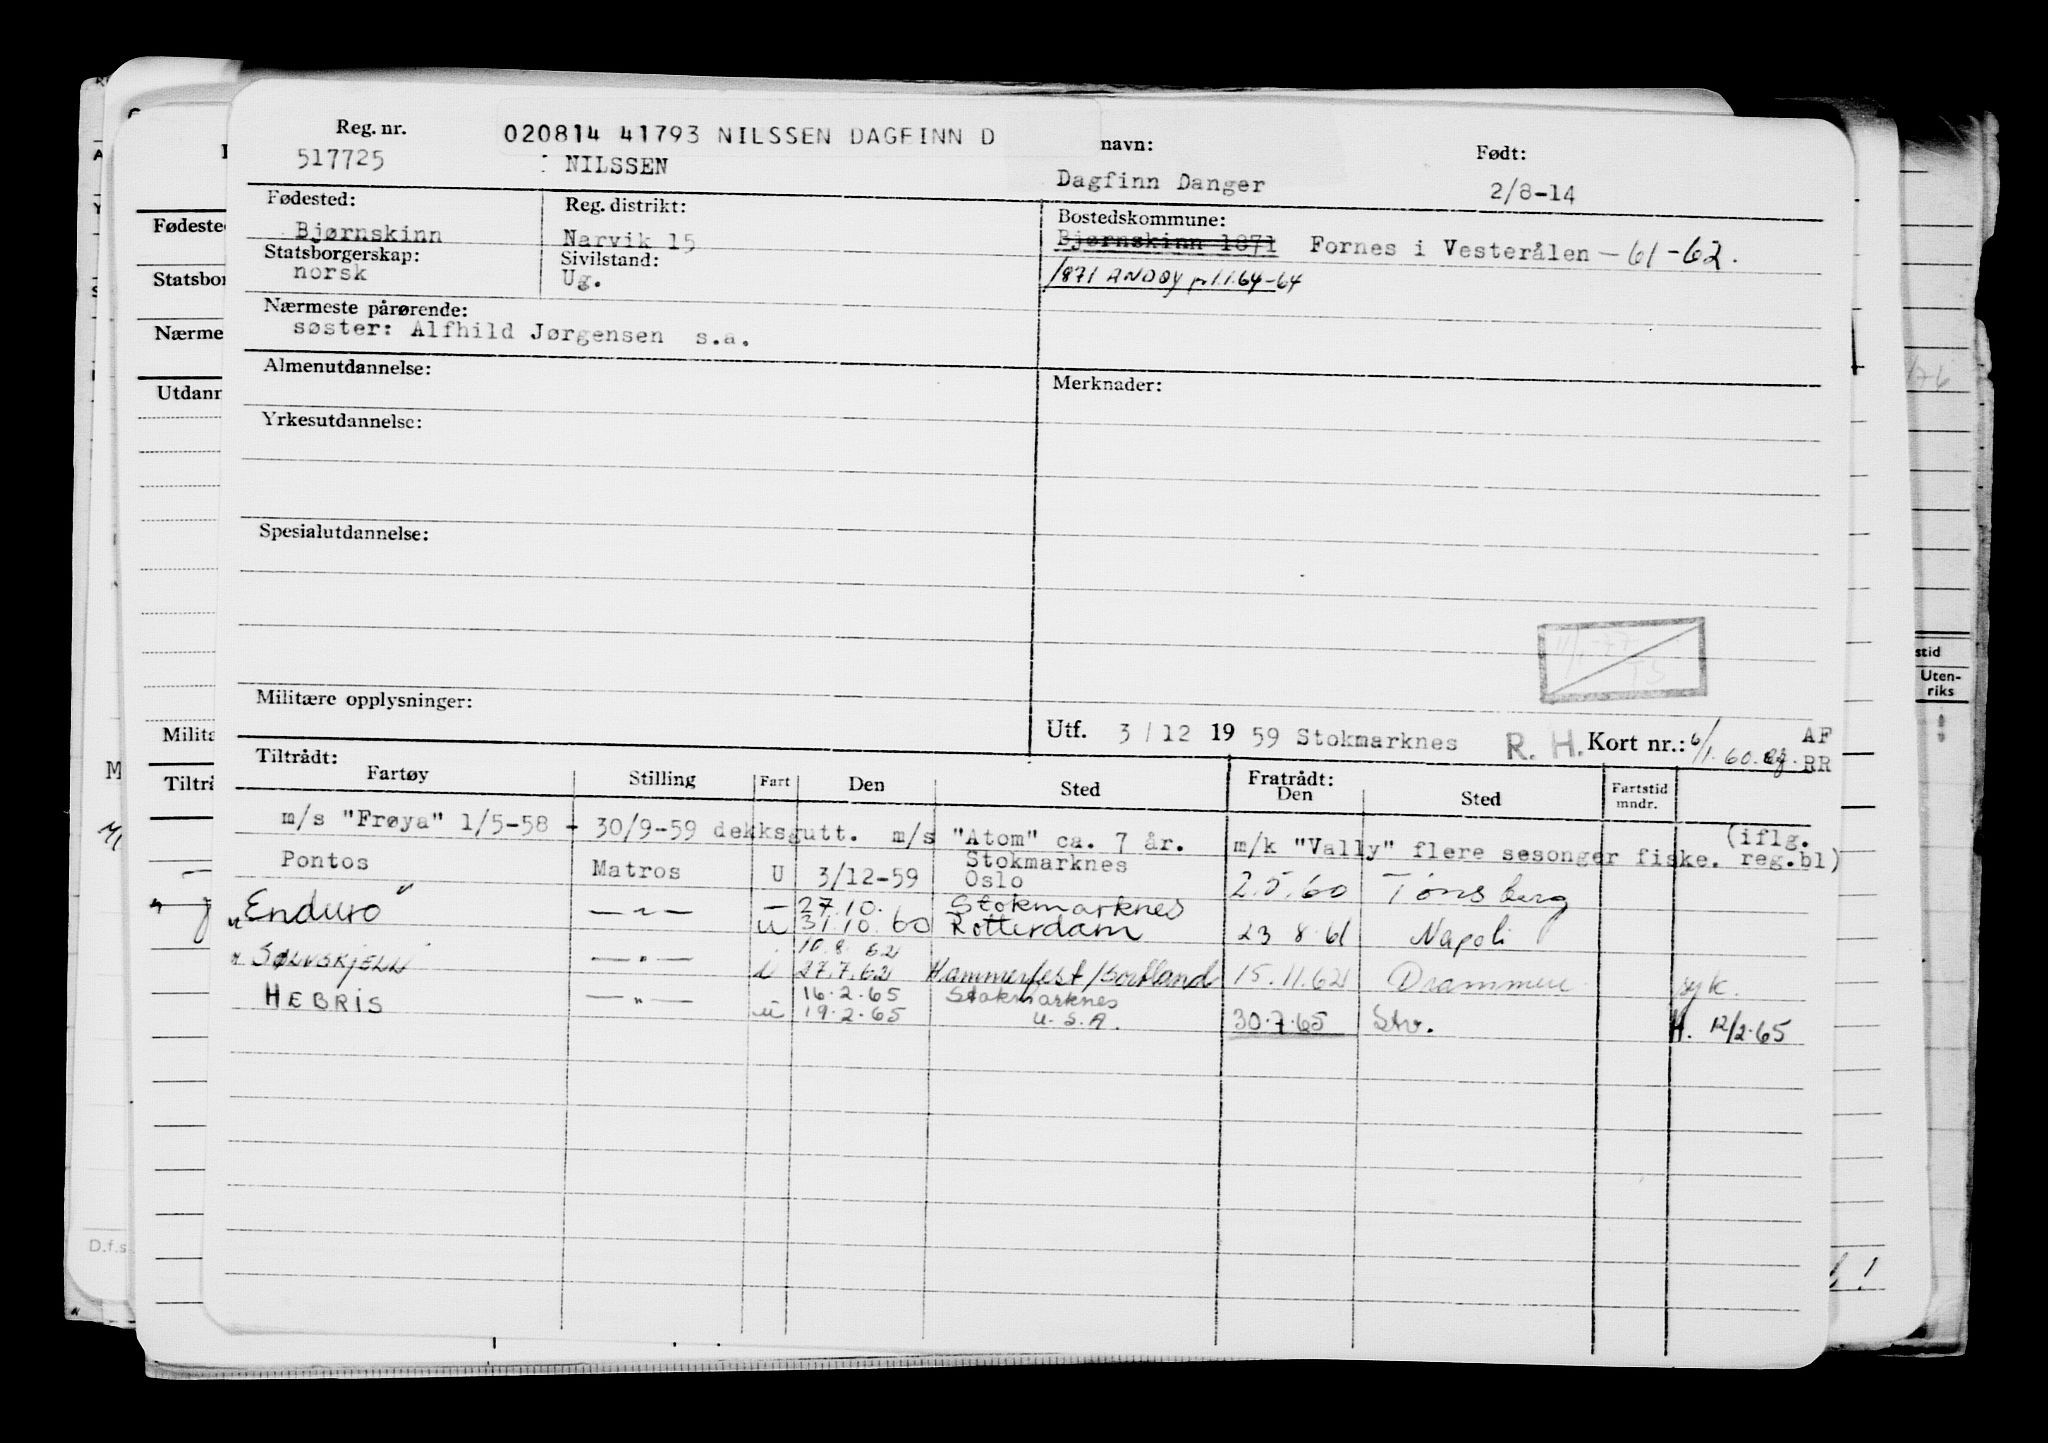 Reg. nr. 020814 41793 NILSSEN DAGFINN D navn: Født:
517725 NILSSEN Dagfinn Danger 2/8-14
Fødested: Reg. distrikt: Bostedskommune:
Bjørnskinn Narvik 15 Bjørnskinn 1871 Fornes i Vesterålen - 61-62.
Statsborgerskap: Sivilstand: 1871 ANDØY pr 1.1.64-64
norsk Ug.
Nærmeste pårørende:
søster: Alfhild Jørgensen s.a.
Almenutdannelse: Merknader:
Yrkesutdannelse:
Spesialutdannelse:
Militære opplysninger:
Utf. 3/12 19 59 Stokmarknes R. H. Kort nr.: 6/1.60. AF
RR
Tiltrådt: Fratrådt:
Fartøy Stilling Fart Den Sted Den Sted Fartstid mndr.
m/s "Frøya" 1/5-58 - 30/9-59 dekksgutt. m/s "Atom" ca. 7 år. m/k "Vally" flere sesonger fiske. (iflg. reg.bl)
Pontos Matros U 3/12-59 Stokmarknes Oslo 2.5.60 Tønsberg
"Enduro" — " — — 27.10. Stokmarknes
u 31.10.60 Rotterdam 23 8.61 Napoli
" SØLVSKJELL — " — 10.8.62
27.7.62 Hammerfest/Sortland 15.11.62 Drammen syk.
HEBRIS — " — 16.2.65 Stokmarknes
u 19.2.65 U.S.A. 30.7.65 Stv. H. 12/2.65
Fødeste
Statsbor
Nærme
Utdann
Milita
Tiltrå
D.f.s
stid
Uten-
riks